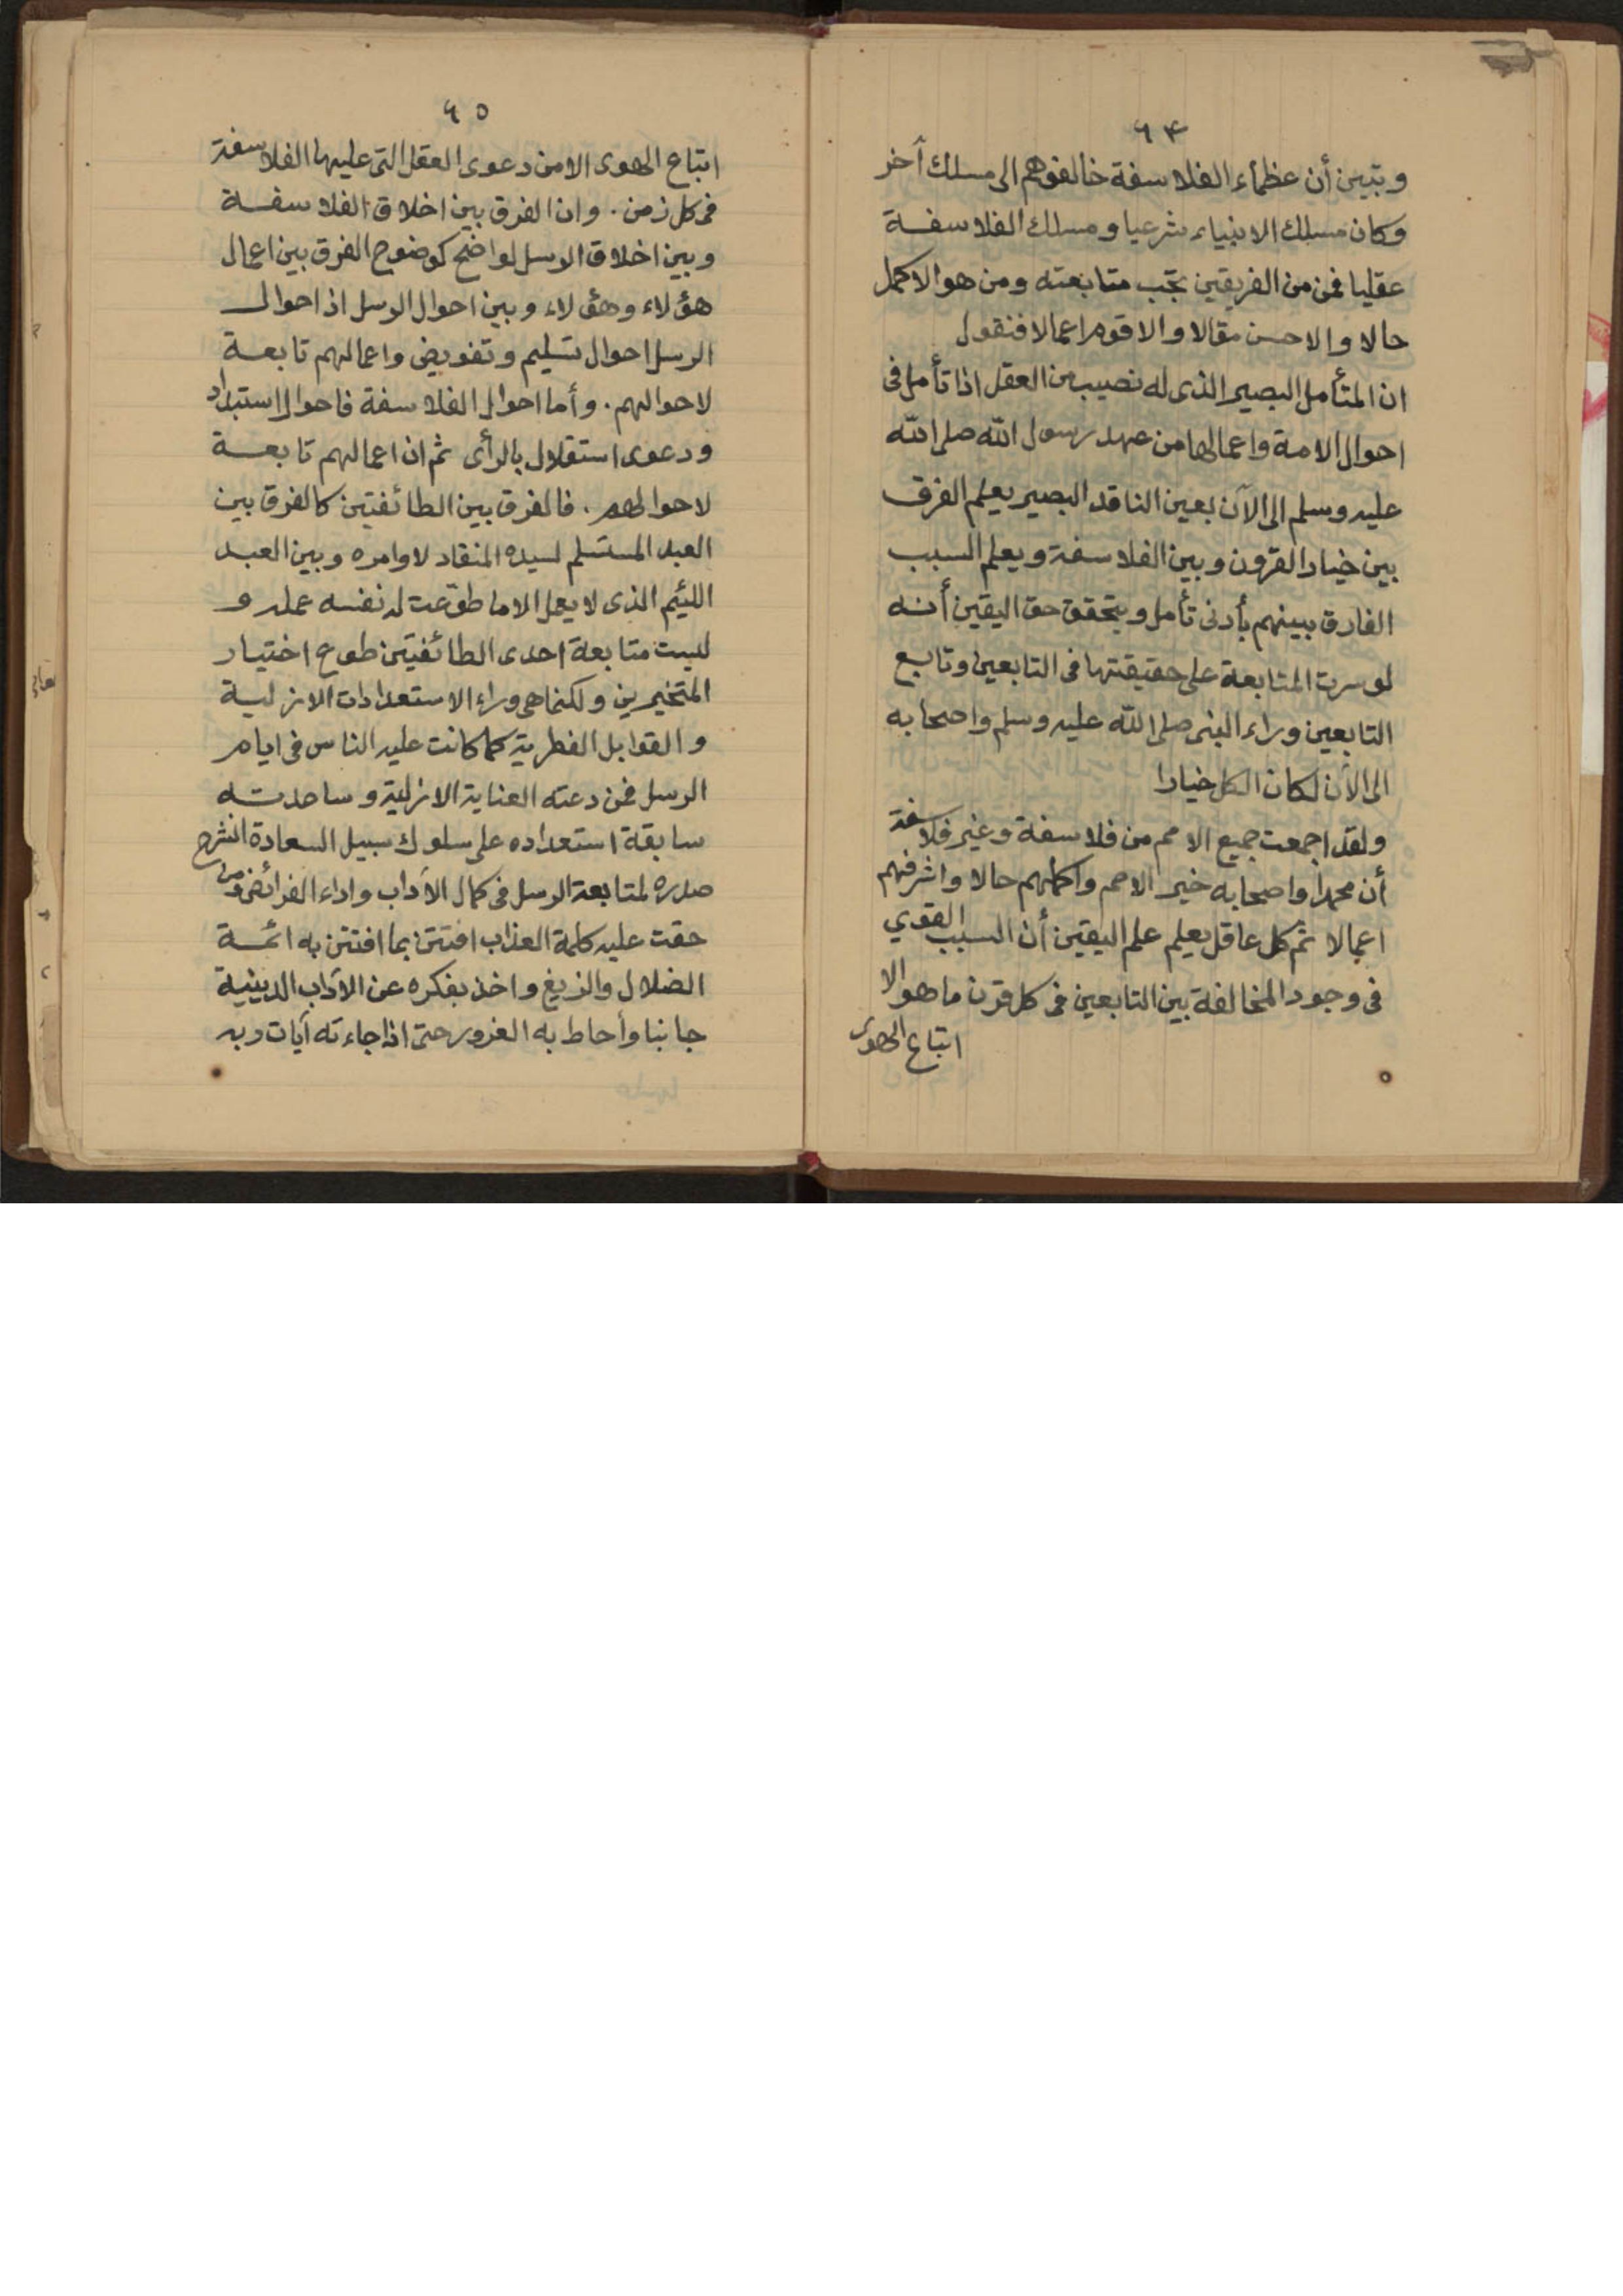 ٩٤
وتبين أن عظماء الفلاسفة خالفوهم الى مسلك آخر
وكان مسلك الانبياء شرعيا ومسلك الفلاسفة
عقليا فمن من الفريقين تجب متابعته ومن هو الاكمل
حالا والاحسن مقالا والاقوم اعمالا فنقول
ان المتأمل البصير الذى له نصيب من العقل اذا تأمل فى
احوال الامة واعمالها من عهد رسول الله صلى الله
عليه وسلم الى الآن بعين الناقد البصير يعلم الفرق
بين خيار القرون وبين الفلاسفة ويعلم السبب
الفارق بينهم بأدنى تأمل ويتحقق حق اليقين أنه
لو سرت المتابعة على حقيقتها فى التابعين وتابع
التابعين وراء النبى صلى الله عليه وسلم واصحابه
الى الآن لكان الكل خيارا
ولقد اجمعت جميع الامم من فلاسفة وغير فلاسفة
أن محمدا واصحابه خير الامم واكملهم حالا واشرفهم
اعمالا ثم كل عاقل يعلم علم اليقين أن السبب القوي
فى وجود المخالفة بين التابعين فى كل قرن ما هو الا
اتباع الهوى
٩٥
اتباع الهوى الا من دعوى العقل التى عليها الفلاسفة
فى كل زمن . وان الفرق بين اخلاق الفلاسفة
وبين اخلاق الرسل لواضح كوضوح الفرق بين اعمال
هؤلاء وهؤلاء وبين احوال الرسل اذ احوال
الرسل احوال تسليم وتفويض واعمالهم تابعة
لاحوالهم . وأما احوال الفلاسفة فاحوال استبداد
ودعوى استقلال بالرأى ثم ان اعمالهم تابعة
لاحوالهم . فالفرق بين الطائفتين كالفرق بين
العبد المستسلم لسيده المنقاد لاوامره وبين العبد
اللئيم الذى لا يعمل الا ما طوّعت له نفسه عمله و
ليست متابعة احدى الطائفتين طوع اختيار
المتخيرين ولكنما هى وراء الاستعدادات الازلية
والقوابل الفطرية كما كانت عليه الناس فى ايام
الرسل فمن دعته العناية الازلية وساعدته
سابقة استعداده على سلوك سبيل السعادة انشرح
صدره لمتابعة الرسل فى كمال الآداب واداء الفرائض ومن
حقت عليه كلمة العذاب افتتن بما افتتن به ائمة
الضلال والزيغ واخذ بفكره عن الآداب الدينية
جانبا وأحاط به الغرور حتى اذا جاءته آيات ربه